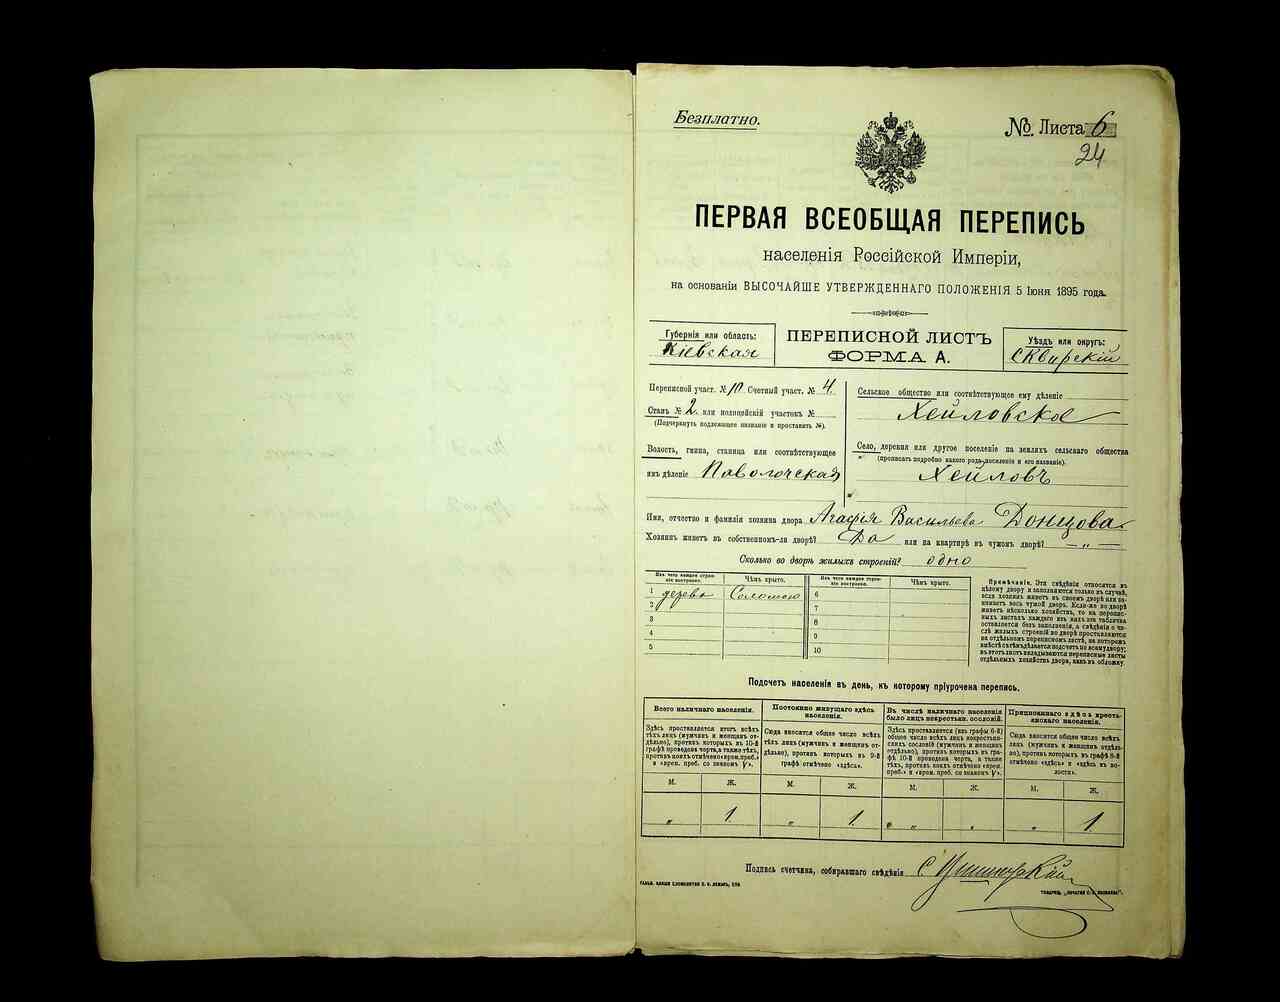 Безплатно.
№ Листа 6
24
ПЕРВАЯ ВСЕОБЩАЯ ПЕРЕПИСЬ
населенія Россійской Имперіи,
на основаніи ВЫСОЧАЙШЕ УТВЕРЖДЕННАГО ПОЛОЖЕНІЯ 5 Іюня 1895 года.
Губернія или область:
Кіевская
ПЕРЕПИСНОЙ ЛИСТЪ
ФОРМА А.
Уѣздъ или округъ:
Сквирскій
Переписной участ. № 10 Счетный участ. № 4.
Станъ № 2 или полицейскій участокъ №
(Подчеркнуть подлежащее названіе и проставить №).
Волость, гмина, станица или соотвѣтствующее
имъ дѣленіе Паволочская
Сельское общество или соотвѣтствующее ему дѣленіе
Хейловское
Село, деревня или другое поселеніе на земляхъ сельскаго общества
(прописать подробно какого рода поселеніе и его названіе).
Хейловъ
Имя, отчество и фамилія хозяина двора Агафія Васильева Донцова
Хозяинъ живетъ въ собственномъ-ли дворѣ? Да или на квартирѣ въ чужомъ дворѣ? — „ —
Сколько во дворѣ жилыхъ строеній? одно
Изъ чего каждое строеніе построено.
Чѣмъ крыто.
Изъ чего каждое строеніе построено.
Чѣмъ крыто.
1 дерево Соломою 6
2 7
3 8
4 9
5 10
Примѣчаніе. Эти свѣдѣнія относятся къ
цѣлому двору и заполняются только въ случаѣ,
если хозяинъ живетъ въ своемъ дворѣ или занимаетъ
весь чужой дворъ. Если-же во дворѣ
живетъ нѣсколько хозяйствъ, то на переписныхъ
листахъ каждаго изъ нихъ эта табличка
оставляется безъ заполненія, а свѣдѣнія о числѣ
жилыхъ строеній во дворѣ проставляются
на отдѣльномъ переписномъ листѣ, на которомъ
вмѣстѣ съ тѣмъ дѣлается подсчетъ по всему двору;
въ этотъ листъ вкладываются переписные листы
отдѣльныхъ хозяйствъ двора, какъ въ обложку.
Подсчетъ населенія въ день, къ которому пріурочена перепись.
Всего наличнаго населенія.
Здѣсь проставляется итогъ всѣхъ
тѣхъ лицъ (мужчинъ и женщинъ отдѣльно),
противъ которыхъ въ 10-й
графѣ проведена черта, а также тѣхъ,
противъ коихъ отмѣчено «врем. преб.»
и «врем. преб. со знакомъ V».
Постоянно живущаго здѣсь
населенія.
Сюда вносится общее число всѣхъ
тѣхъ лицъ (мужчинъ и женщинъ отдѣльно),
противъ которыхъ въ 9-й
графѣ отмѣчено «здѣсь».
Въ числѣ наличнаго населенія
было лицъ некрестьян. сословій.
Здѣсь проставляется (изъ графы 6-й)
общее число всѣхъ лицъ некрестьянскихъ
сословій (мужчинъ и женщинъ
отдѣльно), противъ которыхъ въ графѣ
10-й проведена черта, а также
тѣхъ, противъ коихъ отмѣчено «врем.
преб.» и «врем. преб. со знакомъ V».
Приписаннаго здѣсь крестьянскаго
населенія.
Сюда вносится общее число всѣхъ
лицъ (мужчинъ и женщинъ отдѣльно),
противъ которыхъ въ графѣ 8-й
отмѣчено «здѣсь» и «здѣсь въ волости».
М. Ж. М. Ж. М. Ж. М. Ж.
„ 1. „ 1. „ „ „ 1.
Подпись счетчика, собиравшаго свѣдѣнія